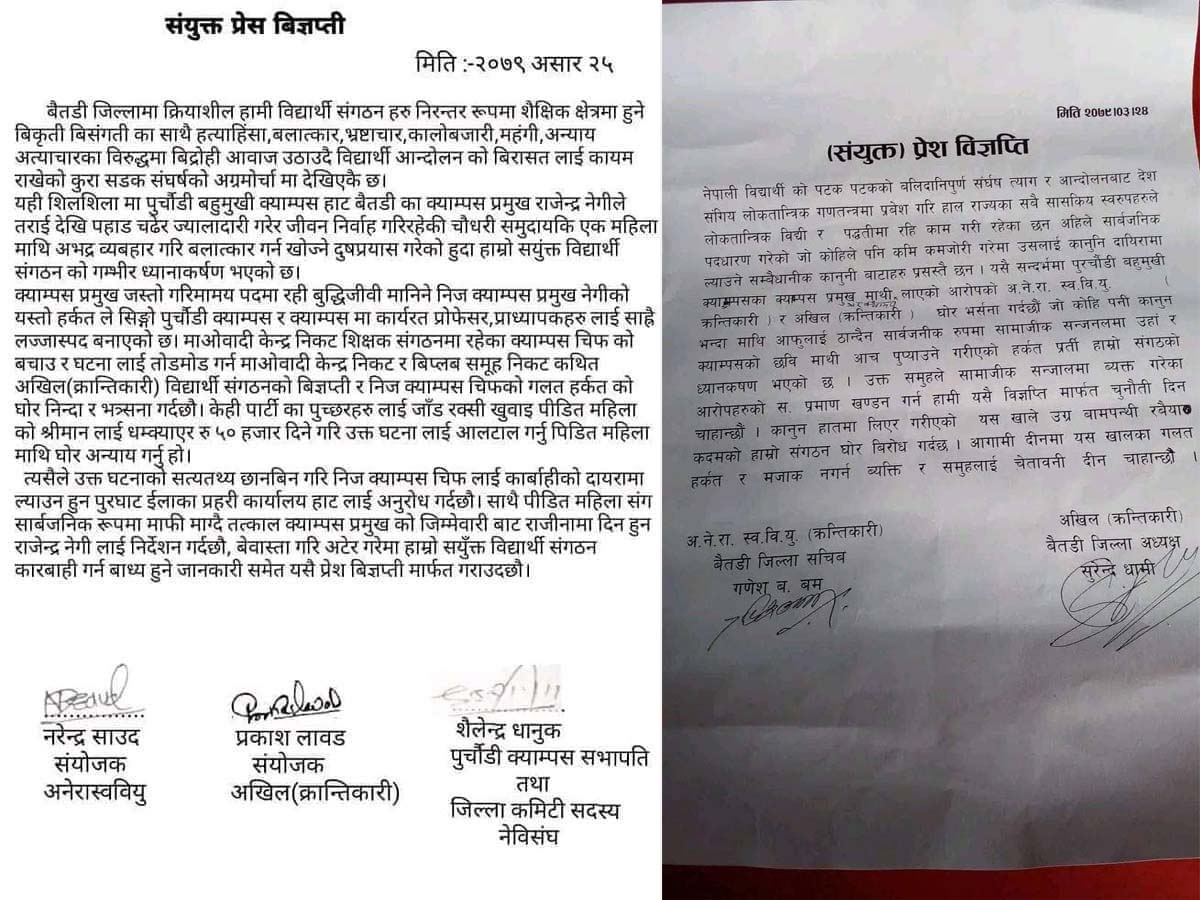 संयुक्त प्रेस बिज्ञप्ती
मिति :-२०७९ असार २५
बैतडी जिल्लामा क्रियाशील हामी विद्यार्थी संगठन हरु निरन्तर रूपमा शैक्षिक क्षेत्रमा हुने
बिकृती बिसंगती का साथै हत्याहिंसा,बलात्कार,भ्रष्टाचार,कालोबजारी,महंगी,अन्याय
अत्याचारका विरुद्धमा बिद्रोही आवाज उठाउदै विद्यार्थी आन्दोलन को बिरासत लाई कायम
राखेको कुरा सडक संघर्षको अग्रमोर्चा मा देखिएकै छ।
यही शिलशिला मा पुर्चौडी बहुमुखी क्याम्पस हाट बैतडी का क्याम्पस प्रमुख राजेन्द्र नेगीले
तराई देखि पहाड चढेर ज्यालादारी गरेर जीवन निर्वाह गरिरहेकी चौधरी समुदायकि एक महिला
माथि अभद्र ब्यबहार गरि बलात्कार गर्न खोज्ने दुषप्रयास गरेको हुदा हाम्रो सयुंक्त विद्यार्थी
संगठन को गम्भीर ध्यानाकर्षण भएको छ।
क्याम्पस प्रमुख जस्तो गरिमामय पदमा रही बुद्धिजीवी मानिने निज क्याम्पस प्रमुख नेगीको
यस्तो हर्कत ले सिङ्गो पुर्चौडी क्याम्पस र क्याम्पस मा कार्यरत प्रोफेसर,प्राध्यापकहरु लाई साह्रै
लज्जास्पद बनाएको छ। माओवादी केन्द्र निकट शिक्षक संगठनमा रहेका क्याम्पस चिफ को
बचाउ र घटना लाई तोडमोड गर्न माओवादी केन्द्र निकट र बिप्लब समूह निकट कथित
अखिल(क्रान्तिकारी) विद्यार्थी संगठनको बिज्ञप्ती र निज क्याम्पस चिफको गलत हर्कत को
घोर निन्दा र भर्त्सना गर्दछौ। केही पार्टी का पुच्छरहरु लाई जाँड रक्सी खुवाइ पीडित महिला
को श्रीमान लाई धम्क्याएर रु ५० हजार दिने गरि उक्त घटना लाई आलटाल गर्नु पिडित महिला
माथि घोर अन्याय गर्नु हो।
त्यसैले उक्त घटनाको सत्यतथ्य छानबिन गरि निज क्याम्पस चिफ लाई कार्बाहीको दायरामा
ल्याउन हुन पुरघाट ईलाका प्रहरी कार्यालय हाट लाई अनुरोध गर्दछौ। साथै पीडित महिला संग
सार्बजनिक रूपमा माफी माग्दै तत्काल क्याम्पस प्रमुख को जिम्मेवारी बाट राजीनामा दिन हुन
राजेन्द्र नेगी लाई निर्देशन गर्दछौ, बेवास्ता गरि अटेर गरेमा हाम्रो सयुँक्त विद्यार्थी संगठन
कारबाही गर्न बाध्य हुने जानकारी समेत यसै प्रेश बिज्ञप्ती मार्फत गराउदछौ।
नरेन्द्र साउद
संयोजक
अनेरास्ववियु
प्रकाश लावड
संयोजक
अखिल(क्रान्तिकारी)
शैलेन्द्र धानुक
पुर्चौडी क्याम्पस सभापति
तथा
जिल्ला कमिटी सदस्य
नेविसंघ
मिति २०७९।०३।२४
(संयुक्त) प्रेश विज्ञप्ति
नेपाली विद्यार्थी को पटक पटकको बलिदानिपुर्ण संर्घष त्याग र आन्दोलनबाट देश
संगिय लोकतान्त्रिक गणतन्त्रमा प्रबेश गरि हाल राज्यका सबै सासकिय स्वरुपहरुले
लोकतान्त्रिक विद्यी र पद्धतीमा रहि काम गरी रहेका छन अहिले सार्बजनिक
पदधारण गरेको जो कोहिले पनि कमि कमजोरी गरेमा उसलाई कानुनि दायिरामा
ल्याउने सम्वैधानीक कानुनी बाटाहरु प्रसस्तै छन । यसै सन्दर्भमा पुरचौंडी बहुमुखी
क्याम्पसका क्याम्पस प्रमुख माथी लाएको आरोपको अ.ने.रा. स्व.वि.यु (
क्रन्तिकारी ) र अखिल (क्रन्तिकारी ) घोर भर्सना गर्दछौं जो कोहि पनी कानुन
भन्दा माथि आफुलाई ठान्दैन सार्वजनीक रुपमा सामाजीक सन्जनलमा उहां र
क्याम्पसको छवि माथी आच पुप्याउने गरीएको हर्कत प्रर्ती हाम्रो संगठको
ध्यानकषण भएको छ । उक्त समुहले सामाजीक सन्जालमा ब्यक्त गरेका
आरोपहरुको स. प्रमाण खण्डन गर्न हामी यसै विज्ञप्ति मार्फत चुनौती दिन
चाहान्छौं । कानुन हातमा लिएर गरीएको यस खाले उग्र बामपन्थी रबैया
कदमको हाम्रो संगठन घोर बिरोध गर्दछ । आगामी दीनमा यस खालका गलत
हर्कत र मजाक नगर्न ब्यक्ति र समुहलाई चेतावनी दीन चाहान्छौं ।
अ.ने.रा. स्व.वि.यु. (क्रन्तिकारी)
बैतडी जिल्ला सचिब
गणेश ब. बम
अखिल (क्रन्तिकारी)
बैतडी जिल्ला अध्यक्ष
सुरेन्द्र धामी